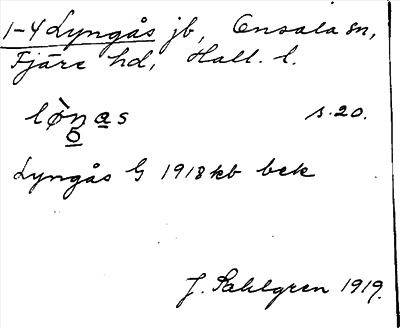 1-4 Lyngås jb, Onsala sn,
Fjäre hd, Hall. l.
lø̀nas s. 20.
o
Lyngås G 1918 kb bek
J. Sahlgren 1919.